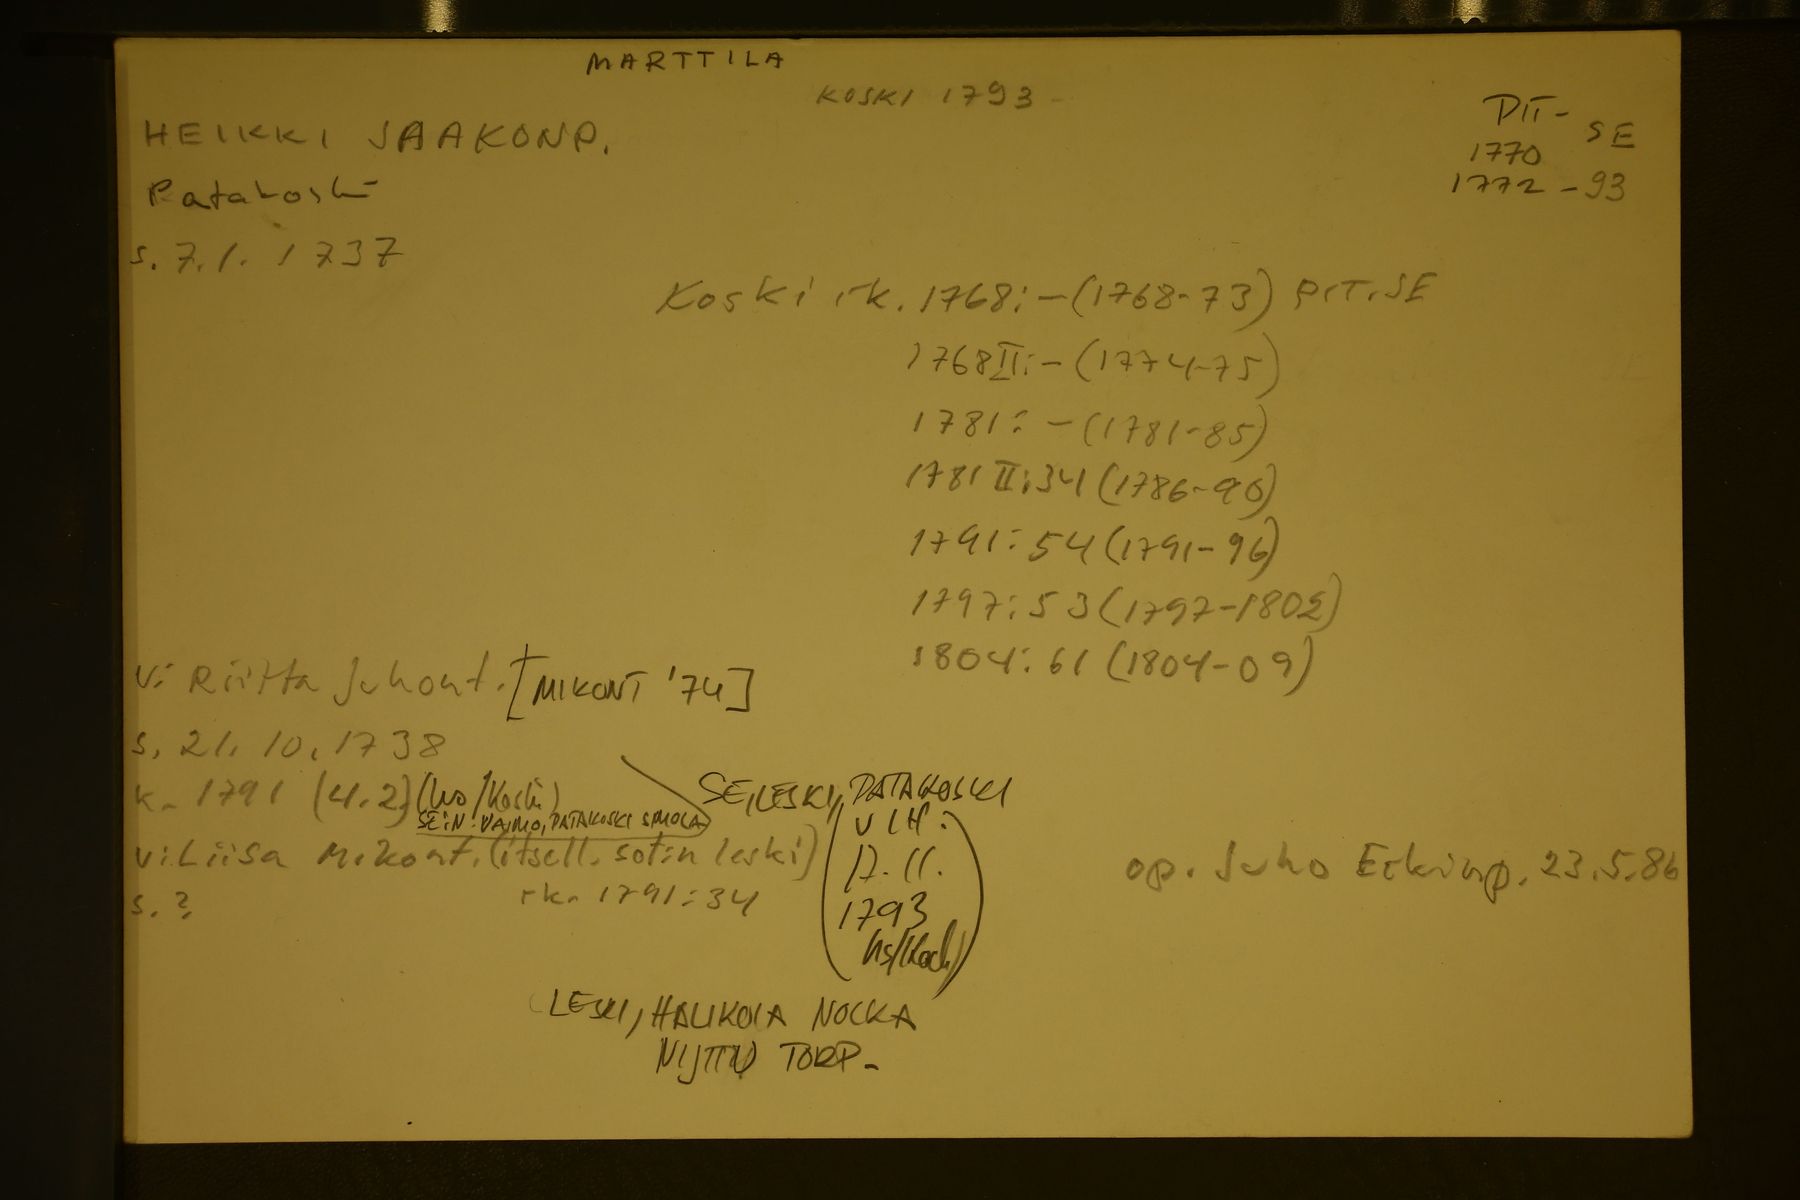 MARTTILA
KOSKI 1793 -
HEIKKI JAAKONP.
PIT- SE
1770
1772 - 93
Patakoski
s. 7.1. 1737
Koski rk. 1768: - (1768-73) PIT. SE
1768 II: - (1774-75)
1781: - (1781-85)
1781 II: 34 (1786-90)
1791: 54 (1791-96)
1797: 53 (1797-1802)
1804: 61 (1804-09)
v: Riitta Juhont. [MIKONT '74]
s. 21.10.1738
k. 1791 (4.2) (ho/Koski)
SE:N VAIMO, PATAKOSKI SIMOLA
SE, LESKI, PATAKOSKI
v: Liisa Mikont. (itsell. sotin leski)
rk. 1791: 34
s. ?
(VIH:
17.11.
1793
hs/Koski)
op. Juho Erkinp. 23.5.86
LESKI, HALIKOLA NOCKA
NIJTTU TORP.